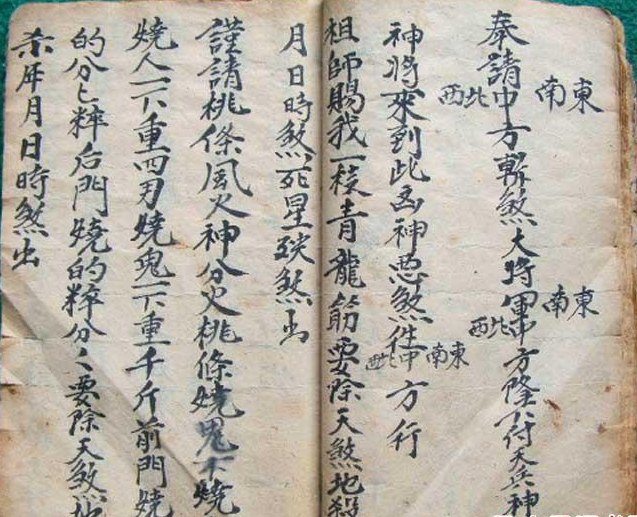 奉請東南中西北方斬煞大將軍東南中西北方降下付天兵神
神將來到此凶神惡煞任東南中西北方行
祖師賜我一枝青龍筋要除天煞地殺
月日時煞死星殃煞出
謹請桃條風火神分火桃條燒鬼下燒
燒人一下重四刃燒鬼一下重千斤前門燒
的分匕粹后門燒的粹分匕要除天煞地
杀年月日時煞出